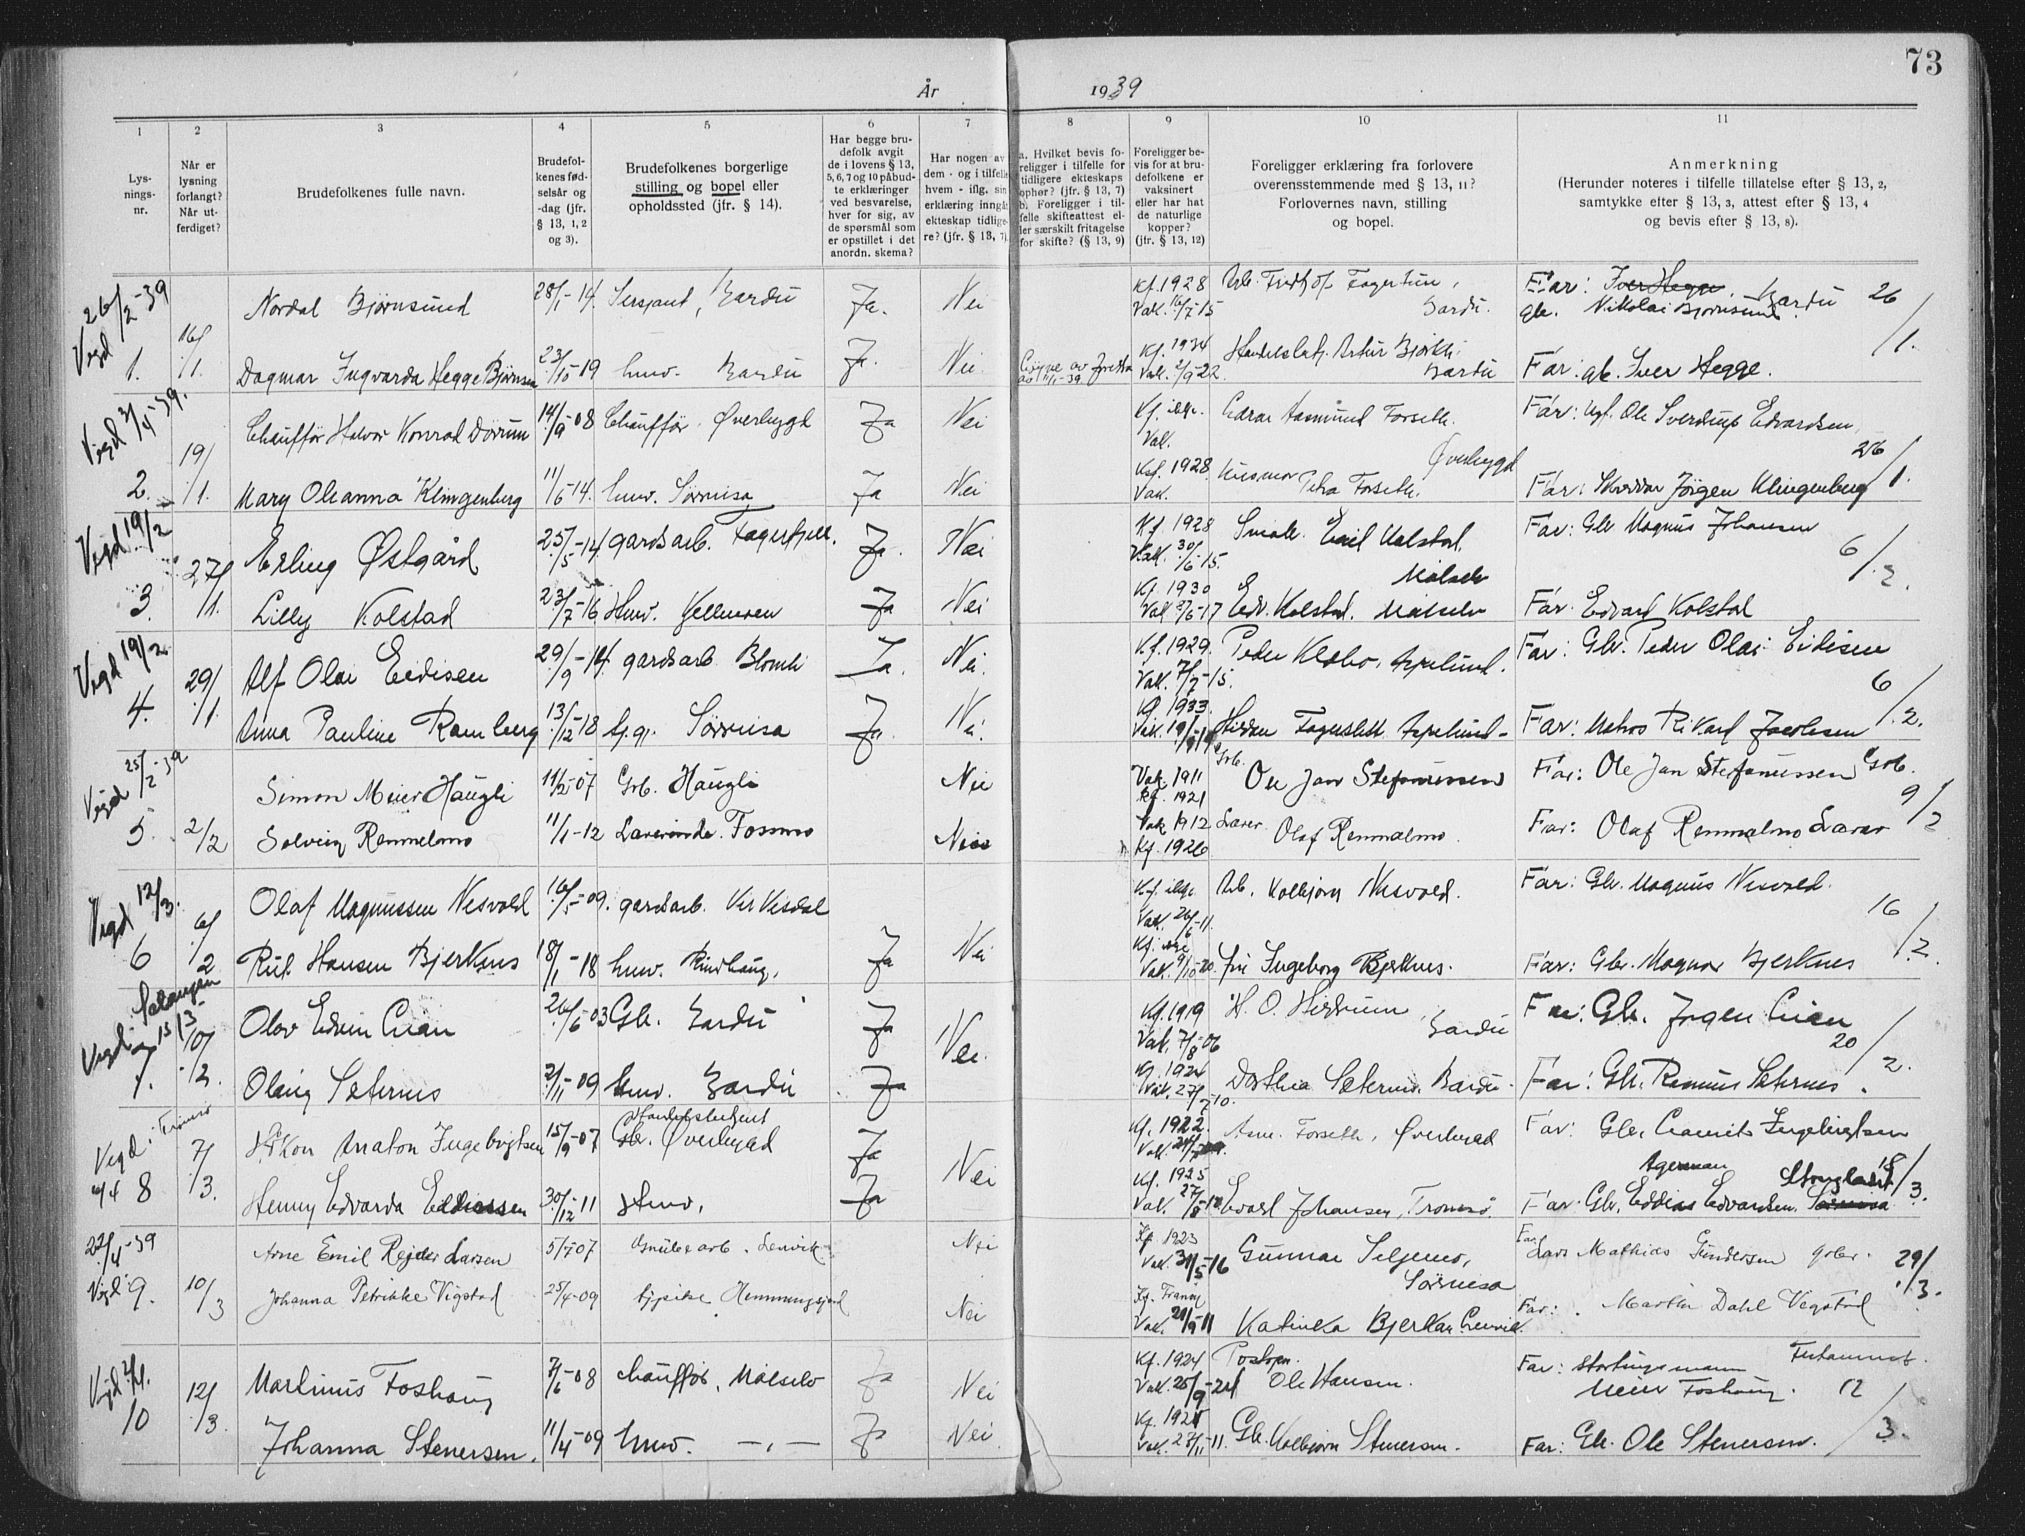 73
År 1939
1 2 3 4 5 6 7 8 9 10 11
Lys-
nings-
nr.
Når er
lysning
forlangt?
Når ut-
ferdiget?
Brudefolkenes fulle navn.
Brudefol-
kenes fød-
selsår og
-dag (jfr.
§ 13, 1, 2
og 3).
Brudefolkenes borgerlige
stilling og bopel eller
opholdssted (jfr. § 14).
Har begge bru-
defolk avgit
de i lovens § 13,
5, 6, 7 og 10 påbud-
te erklæringer
ved besvarelse,
hver for sig, av
de spørsmål som
er opstillet i det
anordn. skema?
Har nogen av
dem - og i tilfelle
hvem - iflg. sin
erklæring inngått
ekteskap tidlige-
re? (jfr. § 13, 7)
a. Hvilket bevis fo-
religger i tilfelle for
tidligere ekteskaps
ophør? (jfr. § 13, 7)
b. Foreligger i til-
felle skifteattest el-
ler særskilt fritagelse
for skifte? (§ 13, 9)
Foreligger be-
vis for at bru-
defolkene er
vaksinert
eller har hat
de naturlige
kopper?
(jfr. § 13, 12)
Foreligger erklæring fra forlovere
overensstemmende med § 13, 11?
Forlovernes navn, stilling
og bopel.
Anmerkning
(Herunder noteres i tilfelle tillatelse efter § 13, 2,
samtykke efter § 13, 3, attest efter § 13, 4
og bevis efter § 13, 8).
Vigd 26/2-39
1. 16/1. Nordal Bjørnsund 28/1-14. Sersjant, Bardu Ja. Nei Kf. 1928 Vak. 16/7-15 Arb. Fridtjof Fagertun, Bardu. Far: Iver Hegge, Bardu 26/1.
gbr. Nikolai Bjørnsund
Dagmar Ingvarda Hegge Bjørnsen 23/10-19 husv. Bardu Ja. Nei. Kf. 1934 Vak. 2/9-22. Handelsbetj. Artur Bjørkli, Bardu Far: gb. Iver Hegge.
Vigd 2/4-39.
2. 19/1. Chauffør Halvor Konrad Dørum 14/9-08 Chauffør Øverbygd Ja Nei Kf. Vak. Asmund Forseth. Øverbygd Far: Ole Sverdrup Edvardsen, 26/1.
Mary Oleanna Klingenberg 11/6-14. husv. Sørreisa Ja Nei Kf. 1928. Vak. Husmor Petra Forseth. Far: Skredder Jørgen Klingenberg
Vigd 19/2
3. 27/1. Erling Østgård 25/5-14. gardsarb. Fagerfjell. Ja. Nei Kf. 1928 Vak. 30/6-15. Småbr. Emil Kolstad. Målselv Far: Gbr. Magnus Johansen 6/2.
Lilly Kolstad 23/7-16 Husv. Ja Nei Kf. 1930 Edv. Kolstad. Målselv Far: Edvard Kolstad
Vigd 19/2
4. 29/1. Alf Olai Eidisen 29/9-14. gardsarb. Blomli Ja. Nei. Kf. 1929. Vak. 7/7-15. Peder Klobo, Aspelund. Far: Gbr. Peder Olai Eidisen 6/2.
Anna Pauline Ramberg 13/12-18 Sørreisa Ja Nei. Kf. 1933. Fagerslett Aspelund- Far: Matros Rikard Jacobsen
Vigd 25/2-39
5. 2/2 Simon Meier Haugli 11/2-07 Grb. Haugli Nei Vak. 1911 Kf. 1921 Grb. Ole Jan Stefanussen Far: Ole Jan Stefanussen Grb. 9/2
Solveig Remmelmo 11/1-12 Lærerinde. Fossmo Nei Vak. 1912 Kf. 1926 Lærer Olaf Remmelmo. Far: Olaf Remmelmo Lærer
Vigd 12/3.
6 6/2 Olaf Magnussen Nesvold 16/5-09. gardsarb. Kirkesdal Kf. Vak. 26/6-11. Arb. Kolbjørn Nesvold. Far: Gbr. Magnus Nesvold. 16/2.
Rut Hansen Bjerknes 18/1-18 husv. Rundhaug, Ja Nei Kf. Vak. 9/10-20. fru Ingeborg Bjerknes. Far: Gbr. Magnar Bjerknes
Vigd i Salangen 15/3-
7. 10/2. Olav Edvin Lian 26/6-03 Gbr. Bardu Ja Nei. Kf. 1919 Vak. 7/8-06 H. O. Hidrum, Bardu Far: Gbr. Jørgen Lien 20/2.
Olaug Seternes 2/11-09 husv. Bardu Ja Kf. 1924 Vak. 27/7-10. Dorthea Seternes. Bardu. Far: Gbr. Rasmus Seternes.
Vigd i Tromsø 4/4
8 7/3. Håkon Anaton Ingebrigtsen 15/9-07 Handelsbetjent Gbr. Øverbygd Ja Nei Kf. 1922. Asm. Forseth, Øverbygd Far: Gbr. Ingebrigtsen
Henny Edvarda Eddiassen 30/12-11 Husv. Ja Kf. 1925 Edvard Johansen, Tromsø. Far: Gbr. Eddias Edvardsen. 18/3.
22/4-39 Vigd
9. 10/3 Arne Emil Rejder Larsen 5/7-07 Grubearb. Lenvik Nei Kf. 1923 Vak. 31/5-16 Gunnar Seljemo, Sørreisa Far: Lars Mathias Gundersen gbr. 29/3.
Johanna Petrikke Vigstad 25/4-09 Hemmingsjord Nei Vak. 21/9-11 Katinka Bjerkan Lenvik. Far: Martin Dahl Vegstad
Vigd 2/4.
10 12/3. Martinus Foshaug 7/6-08 chauffør, Målselv Ja Nei Kf. 1924 Vak. 25/9-24 Postopn. Ole Hansen. Far: stortingsmann Meier Foshaug. 12/3.
Johanna Stenersen. 11/4-09 husv. -,,- Ja Nei. Vak. 27/11-11. Gb. Kolbjørn Stenersen. Far: Gbr. Ole Stenersen.